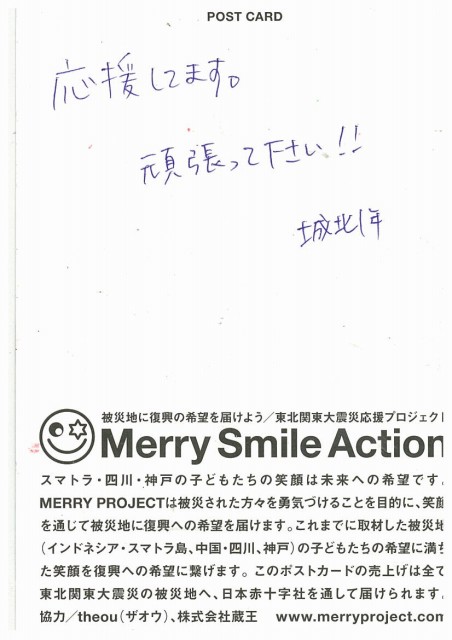 POST CARD
応援してます。
頑張って下さい!!
城北1年
被災地に復興の希望を届けよう/東北関東大震災応援プロジェクト
Merry Smile Action
スマトラ・四川・神戸の子どもたちの笑顔は未来への希望です。
MERRY PROJECTは被災された方々を勇気づけることを目的に、笑顔
を通じて被災地に復興への希望を届けます。これまでに取材した被災地
(インドネシア・スマトラ島、中国・四川、神戸)の子どもたちの希望に満ち
た笑顔を復興への希望に繋げます。このポストカードの売上げは全て
東北関東大震災の被災地へ、日本赤十字社を通して届けられます。
協力/theou(ザオウ)、株式会社蔵王 www.merryproject.com